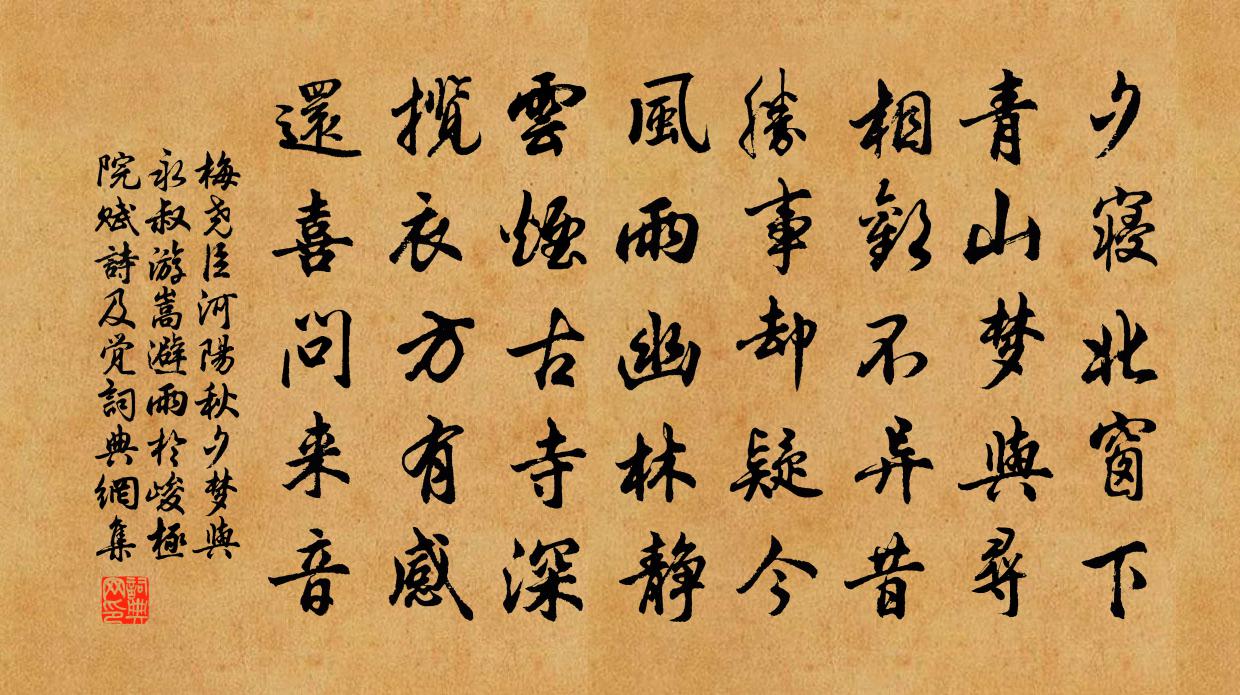 夕寝北窗下
青山梦與尋
相歡不异昔
勝事却疑今
風雨幽林静
雲煙古寺深
攬衣方有感
還喜問来音
梅尧臣河陽秋夕梦與
永叔游嵩避雨於峻極
院赋詩及觉詞典網集
詞典
网印